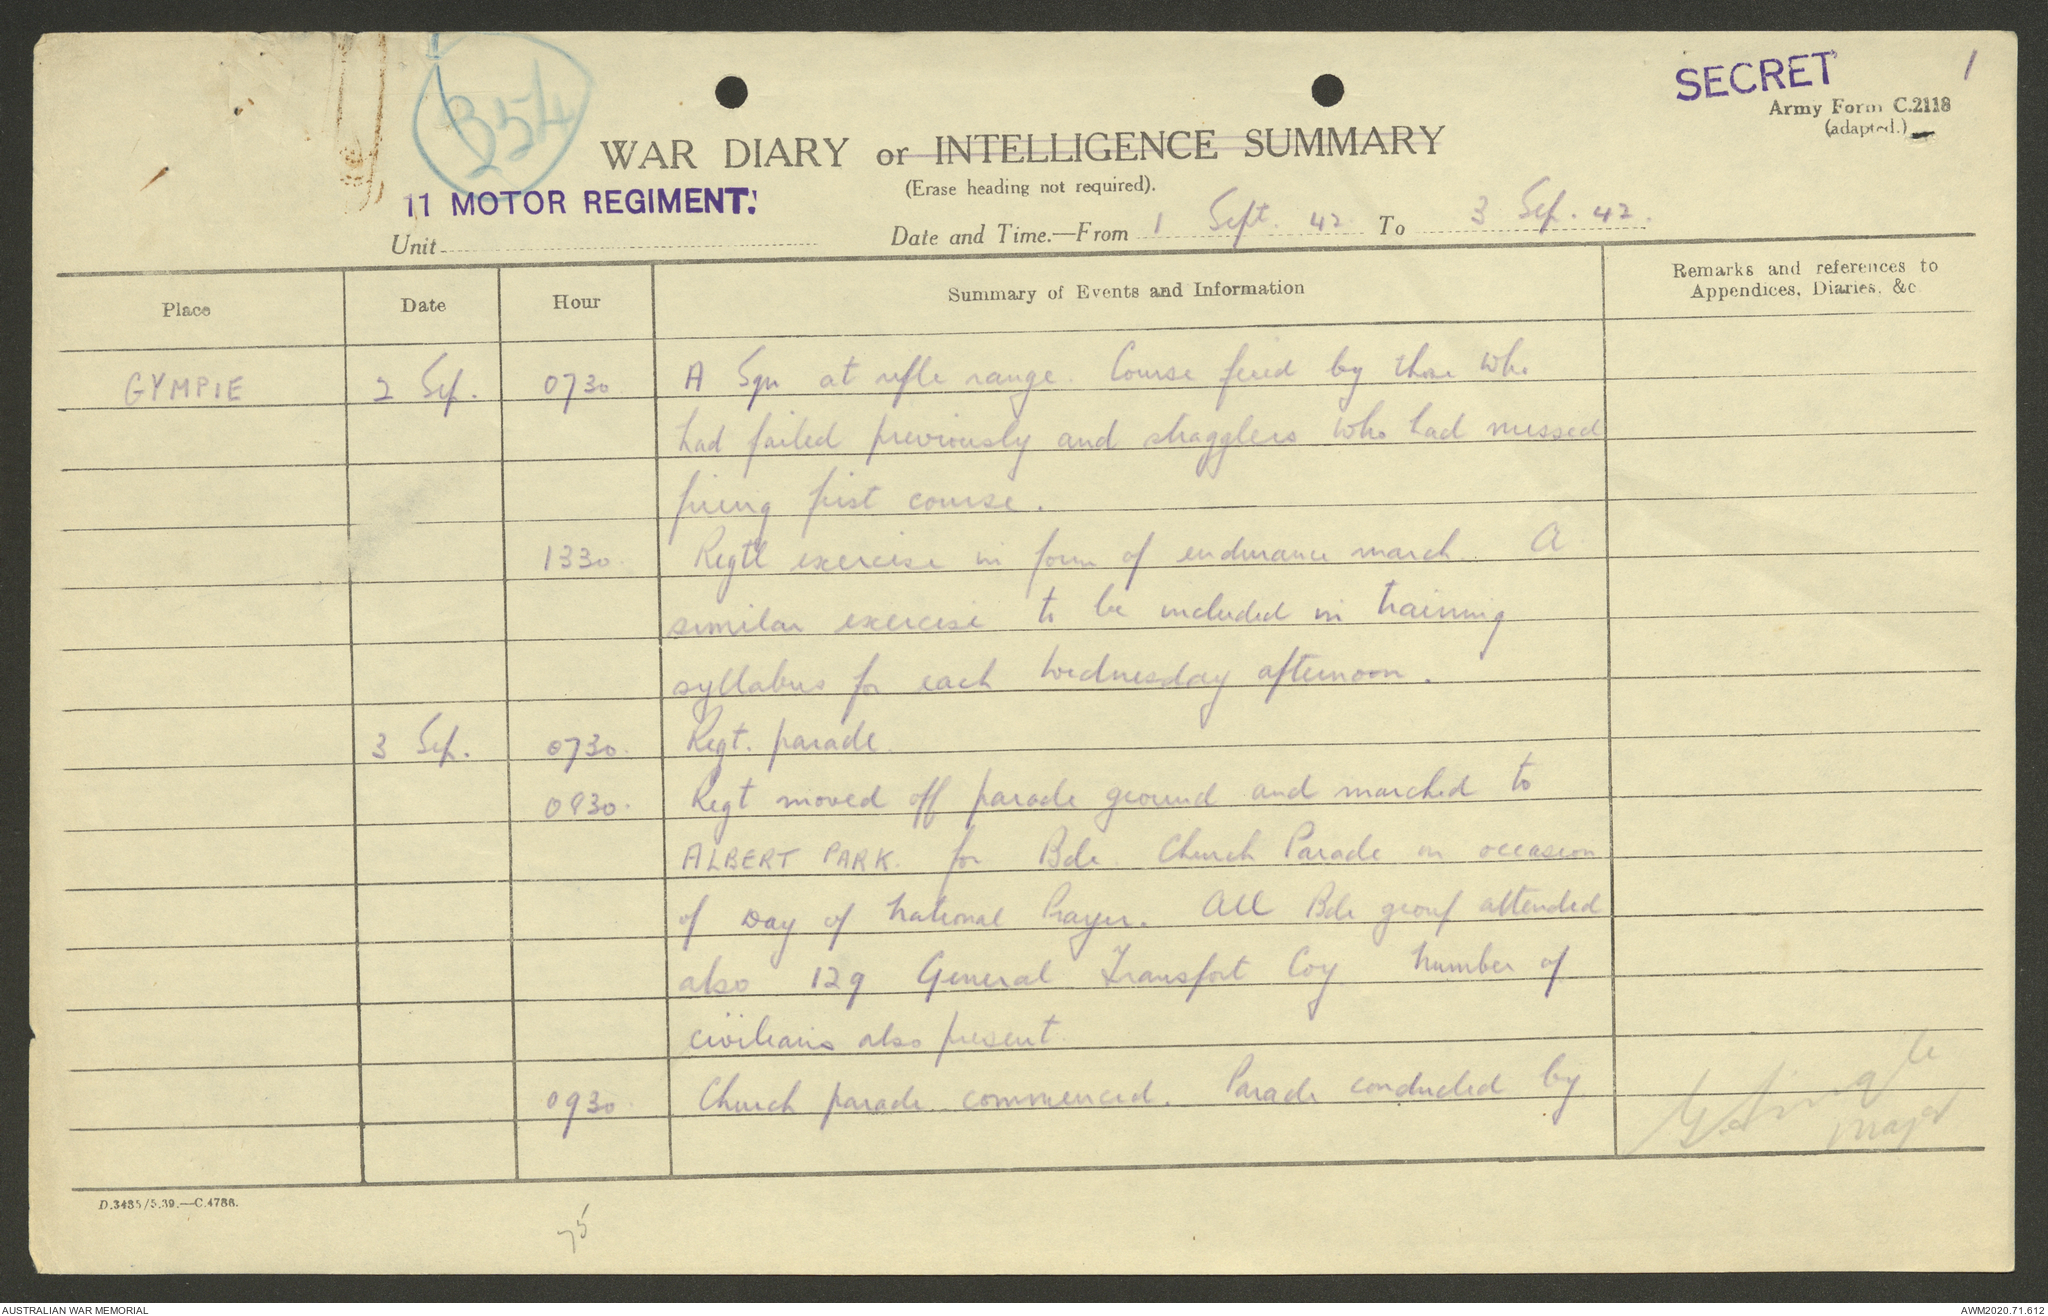 B254
SECRET
1
Army Form C.2118
(adapted.)
WAR DIARY or INTELLIGENCE SUMMARY
(Erase heading not required).
11 MOTOR REGIMENT.
Unit
Date and Time.—From 1 Sept. 42. To 3 Sep. 42.
Place Date Hour Summary of Events and Information Remarks and references to Appendices, Diaries, &c
GYMPIE 2 Sep. 0730 A Sqn at rifle range. Course fired by those who
had failed previously and stragglers who had missed
firing first course.
1330. Regtl exercise in form of endurance march. A
similar exercise to be included in training
syllabus for each Wednesday afternoon.
3 Sep. 0730. Regt. parade.
0830. Regt moved off parade ground and marched to
ALBERT PARK. for Bde. Church Parade on occasion
of Day of National Prayer. All Bde group attended
also 129 General Transport Coy. Number of
civilians also present.
0930. Church parade commenced. Parade conducted by
Major
D.3435/5.39.—C.4788.
75
AUSTRALIAN WAR MEMORIAL
AWM2020.71.612